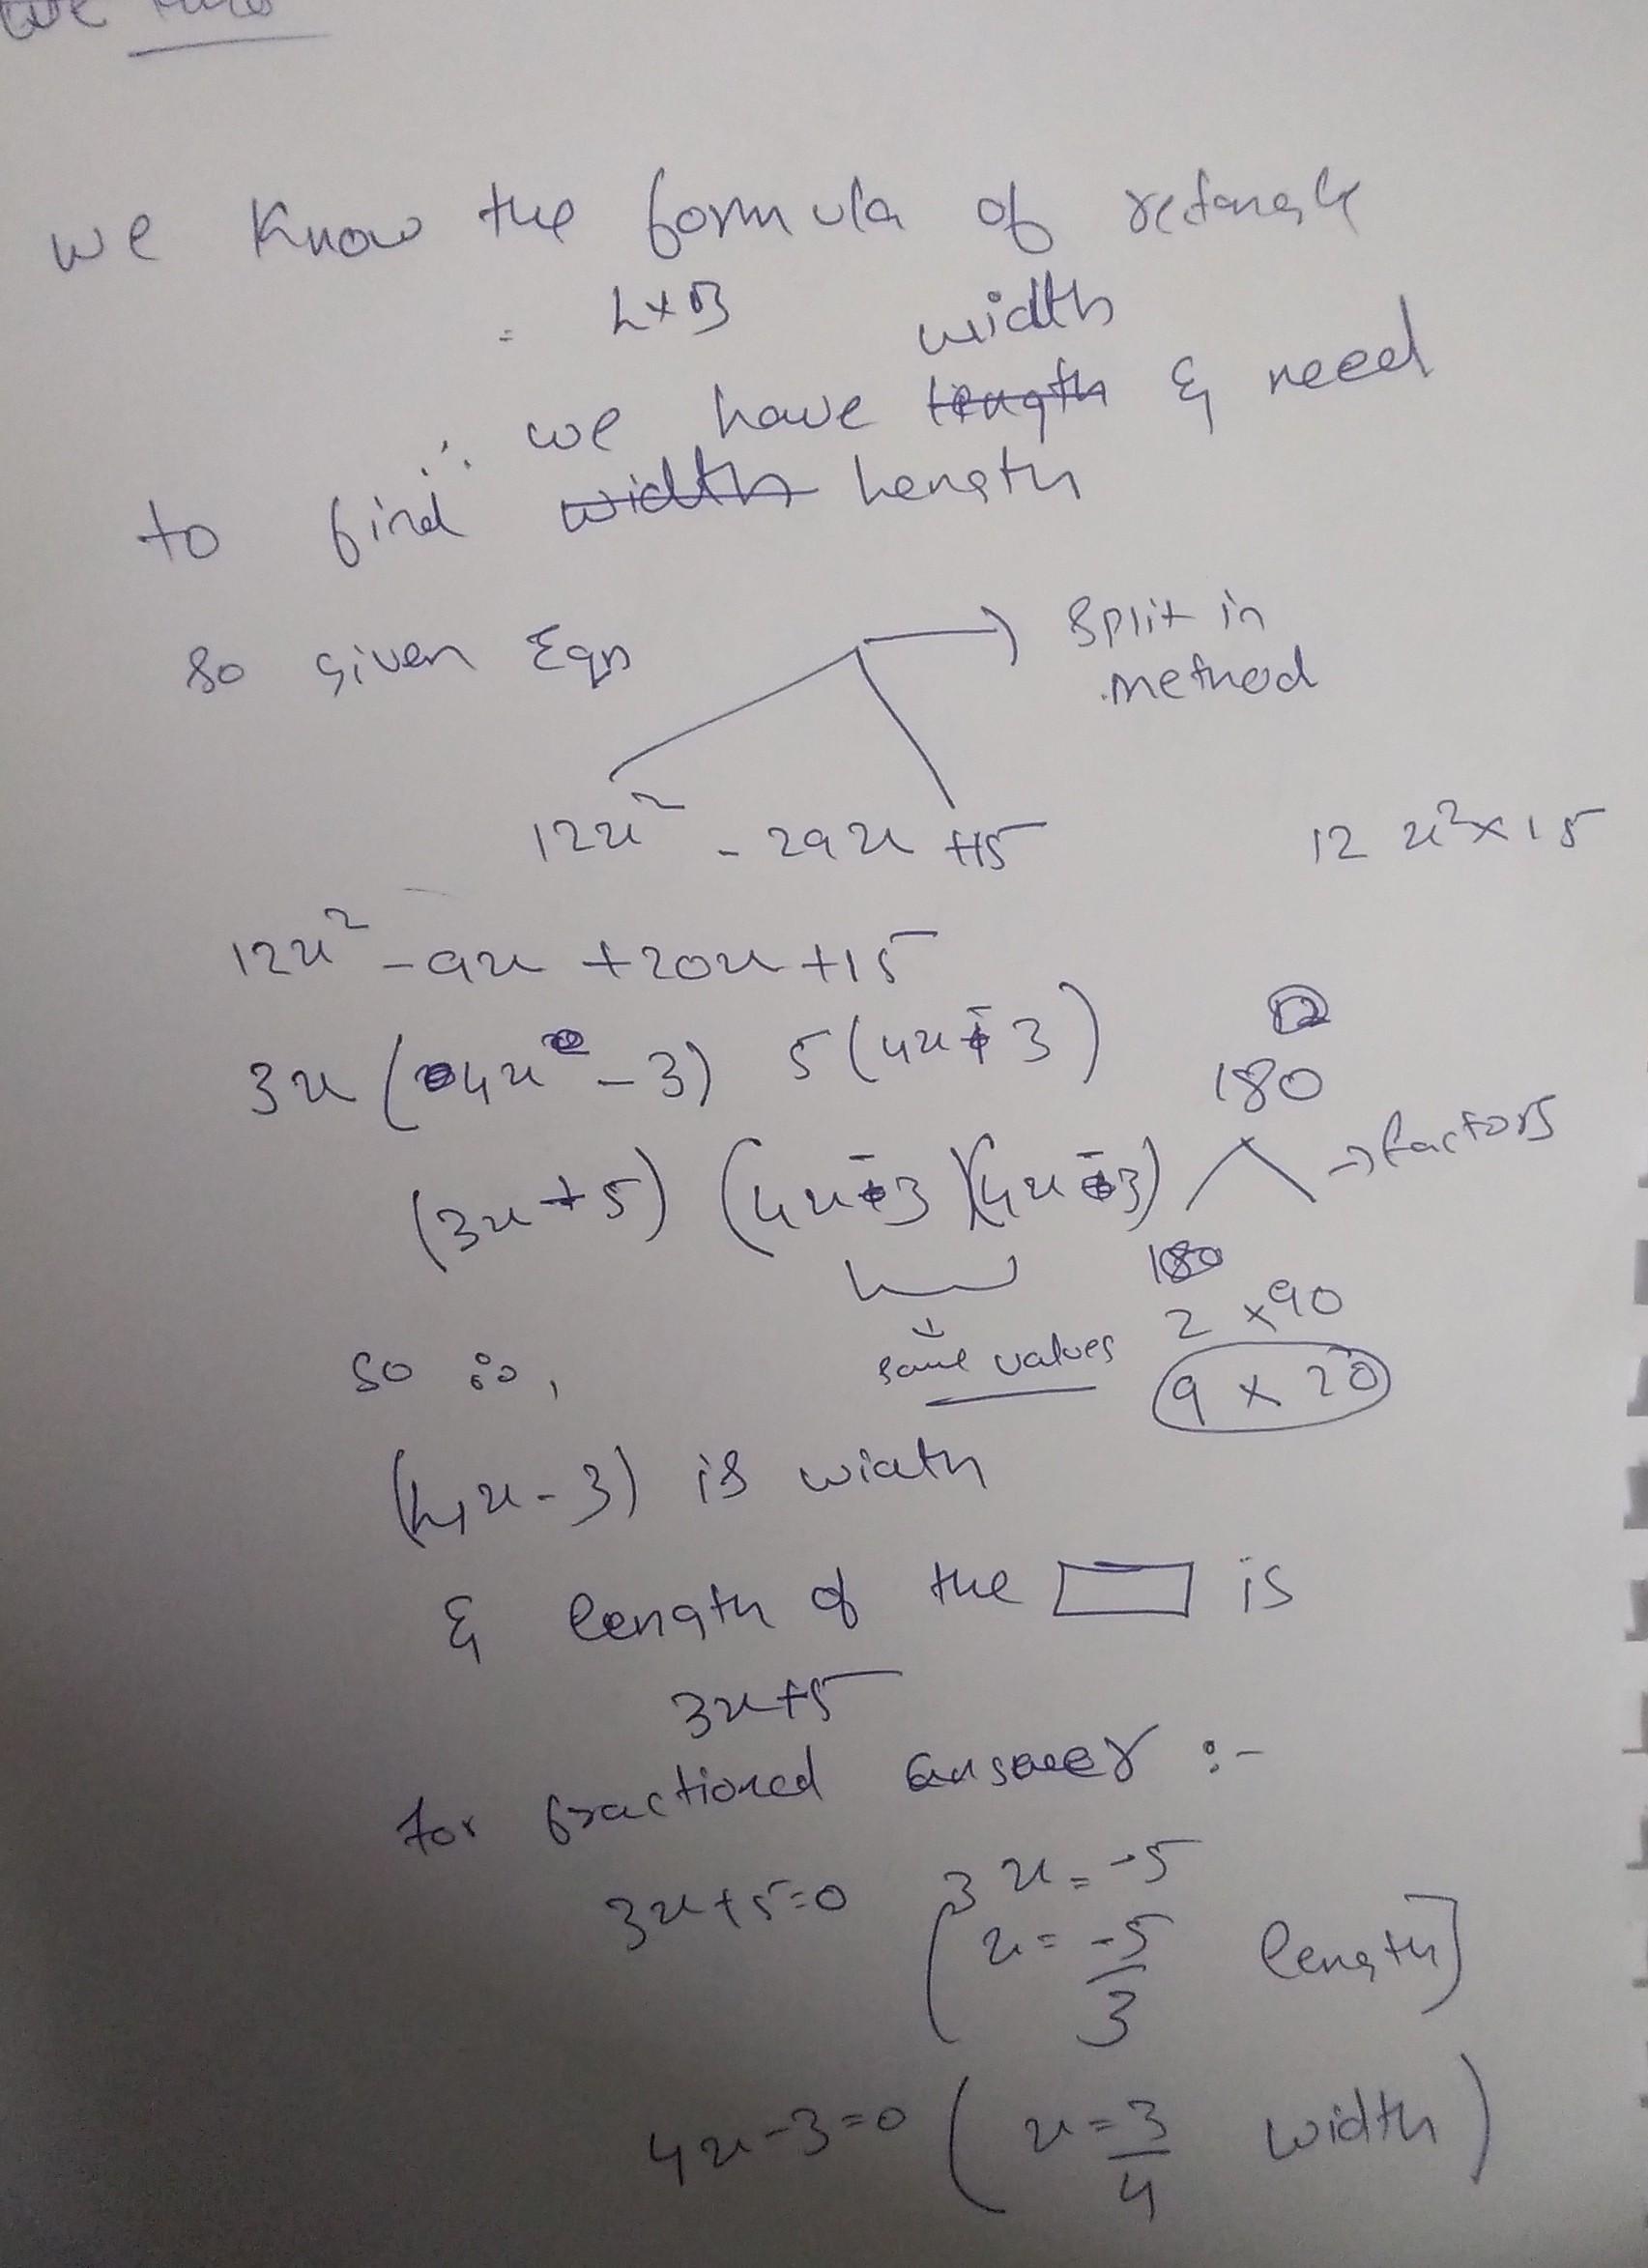 we
we know the formula of rectangle
= L×B
width
∴ we have length & need
to find width Length
so given Eqn → Split in
method
12x² - 29x +15 12x²×15
12x² - 9x + 20x + 15
3x (4x - 3) 5(4x - 3)
180
(3x + 5) (4x - 3)(4x - 3) → factors
180
2 × 90
same values
so ∴,
9 × 20
(4x - 3) is width
& length of the is
3x+5
for fractioned answer :-
3x+5=0 3x = -5
(x = -5/3 length]
4x-3=0 (x = 3/4 width)